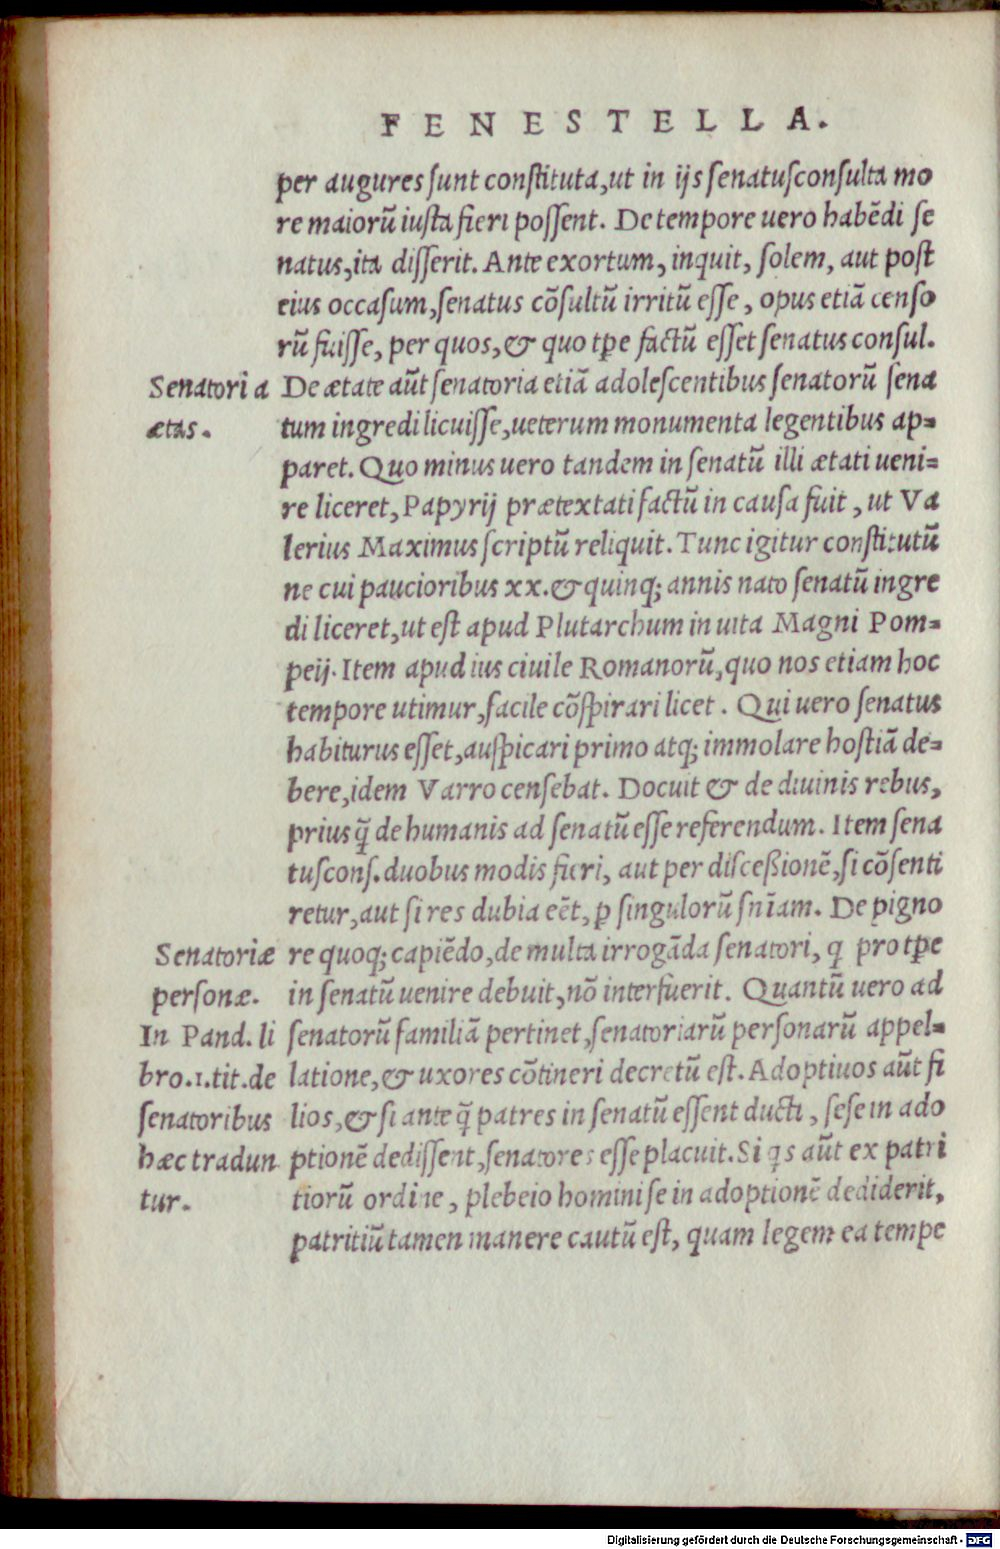 FENESTELLA.
per augures sunt constituta, ut in ijs senatusconsulta mo
re maiorũ iusta fieri possent. De tempore uero habẽdi se
natus, ita disserit. Ante exortum, inquit, solem, aut post
eius occasum, senatus cõsultũ irritũ esse, opus etiã censo
rũ fuisse, per quos, & quo tp̃e factũ esset senatus consul.
Senatoria
ætas.
De ætate aũt senatoria etiã adolescentibus senatorũ sena
tum ingredi licuisse, ueterum monumenta legentibus ap=
paret. Quo minus uero tandem in senatũ illi ætati ueni=
re liceret, Papyrij prætextati factũ in causa fuit, ut Va
lerius Maximus scriptũ reliquit. Tunc igitur constitutũ
ne cui paucioribus xx. & quinq; annis nato senatũ ingre
di liceret, ut est apud Plutarchum in uita Magni Pom=
peij. Item apud ius ciuile Romanorũ, quo nos etiam hoc
tempore utimur, facile cõspirari licet. Qui uero senatus
habiturus esset, auspicari primo atq; immolare hostiã de=
bere, idem Varro censebat. Docuit & de diuinis rebus,
prius q̃ de humanis ad senatũ esse referendum. Item sena
tuscons. duobus modis fieri, aut per discessionẽ, si cõsenti
retur, aut si res dubia eẽt, ꝑ singulorũ sñiam. De pigno
Senatoriæ
personæ.
In Pand. li
bro.1.tit.de
senatoribus
hæc tradun
tur.
re quoq; capiẽdo, de multa irrogãda senatori, q pro tp̃e
in senatũ uenire debuit, nõ interfuerit. Quantũ uero ad
senatorũ familiã pertinet, senatoriarũ personarũ appel=
latione, & uxores cõtineri decretũ est. Adoptiuos aũt fi
lios, & si ante q̃ patres in senatũ essent ducti, sese in ado
ptionẽ dedissent, senatores esse placuit. Si qs aũt ex patri
tiorũ ordine, plebeio homini se in adoptionẽ dediderit,
patritiũ tamen manere cautũ est, quam legem ea tempe
Digitalisierung gefördert durch die Deutsche Forschungsgemeinschaft - DFG